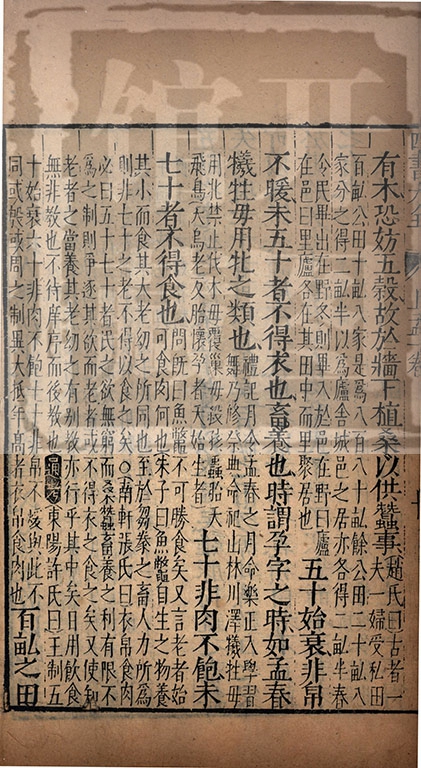 有木恐妨五穀故於牆下植桑以供蠶事趙氏曰古者一
夫一婦受私田
百畝公田十畝八家是為八百八十畝餘公田二十畝八
家分之得二畝半以為廬舍城邑之居亦各得二畝半春
令民畢出在野冬則畢入於邑在野曰廬
在邑曰里廬各在其田中而里聚居也五十始衰非帛
不暖未五十者不得衣也畜養也時謂孕字之時如孟春
犧牲毋用牝之類也禮記月令孟春之月命樂正入學習
舞乃修祭典命祀山林川澤犧牲毋
用牝禁止伐木毋覆巢毋殺孩蟲胎夭
飛鳥夭烏老反胎懷孕者夭始生者七十非肉不飽未
七十者不得食也問既曰魚鼈不可勝食矣又言老者始
可食肉何也朱子曰魚鼈自生之物養
其小而食其大老幼之所同也至於芻豢之畜人力所為
則非七十之老不得以食之矣○南軒張氏曰衣帛食肉
必曰五十七十者民之欲無窮而桑蠶畜養之利有限不
為之制則爭逐其欲而老者或不得衣之食之矣又使知
老者之當養其老幼之有別教亦行乎其中矣日用飲食
無非教也不待庠序而後教也通考東陽許氏曰王制五
十始衰六十非肉不飽七十非帛不煖與此不
同或殷或周之制異大抵年高者衣帛食肉也百畝之田